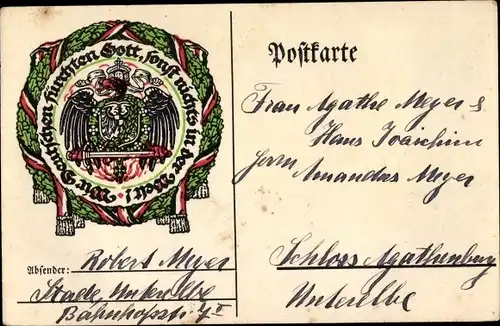 Wir Deutschen fürchten Gott, sonst nichts in der Welt!
Postkarte
Frau Agathe Meyer &
Hans Joachim
Herrn Amandus Meyer
Schloss Agathenburg
Unterelbe
Absender: Robert Meyer
Stade Unterelbe
Bahnhofstr.